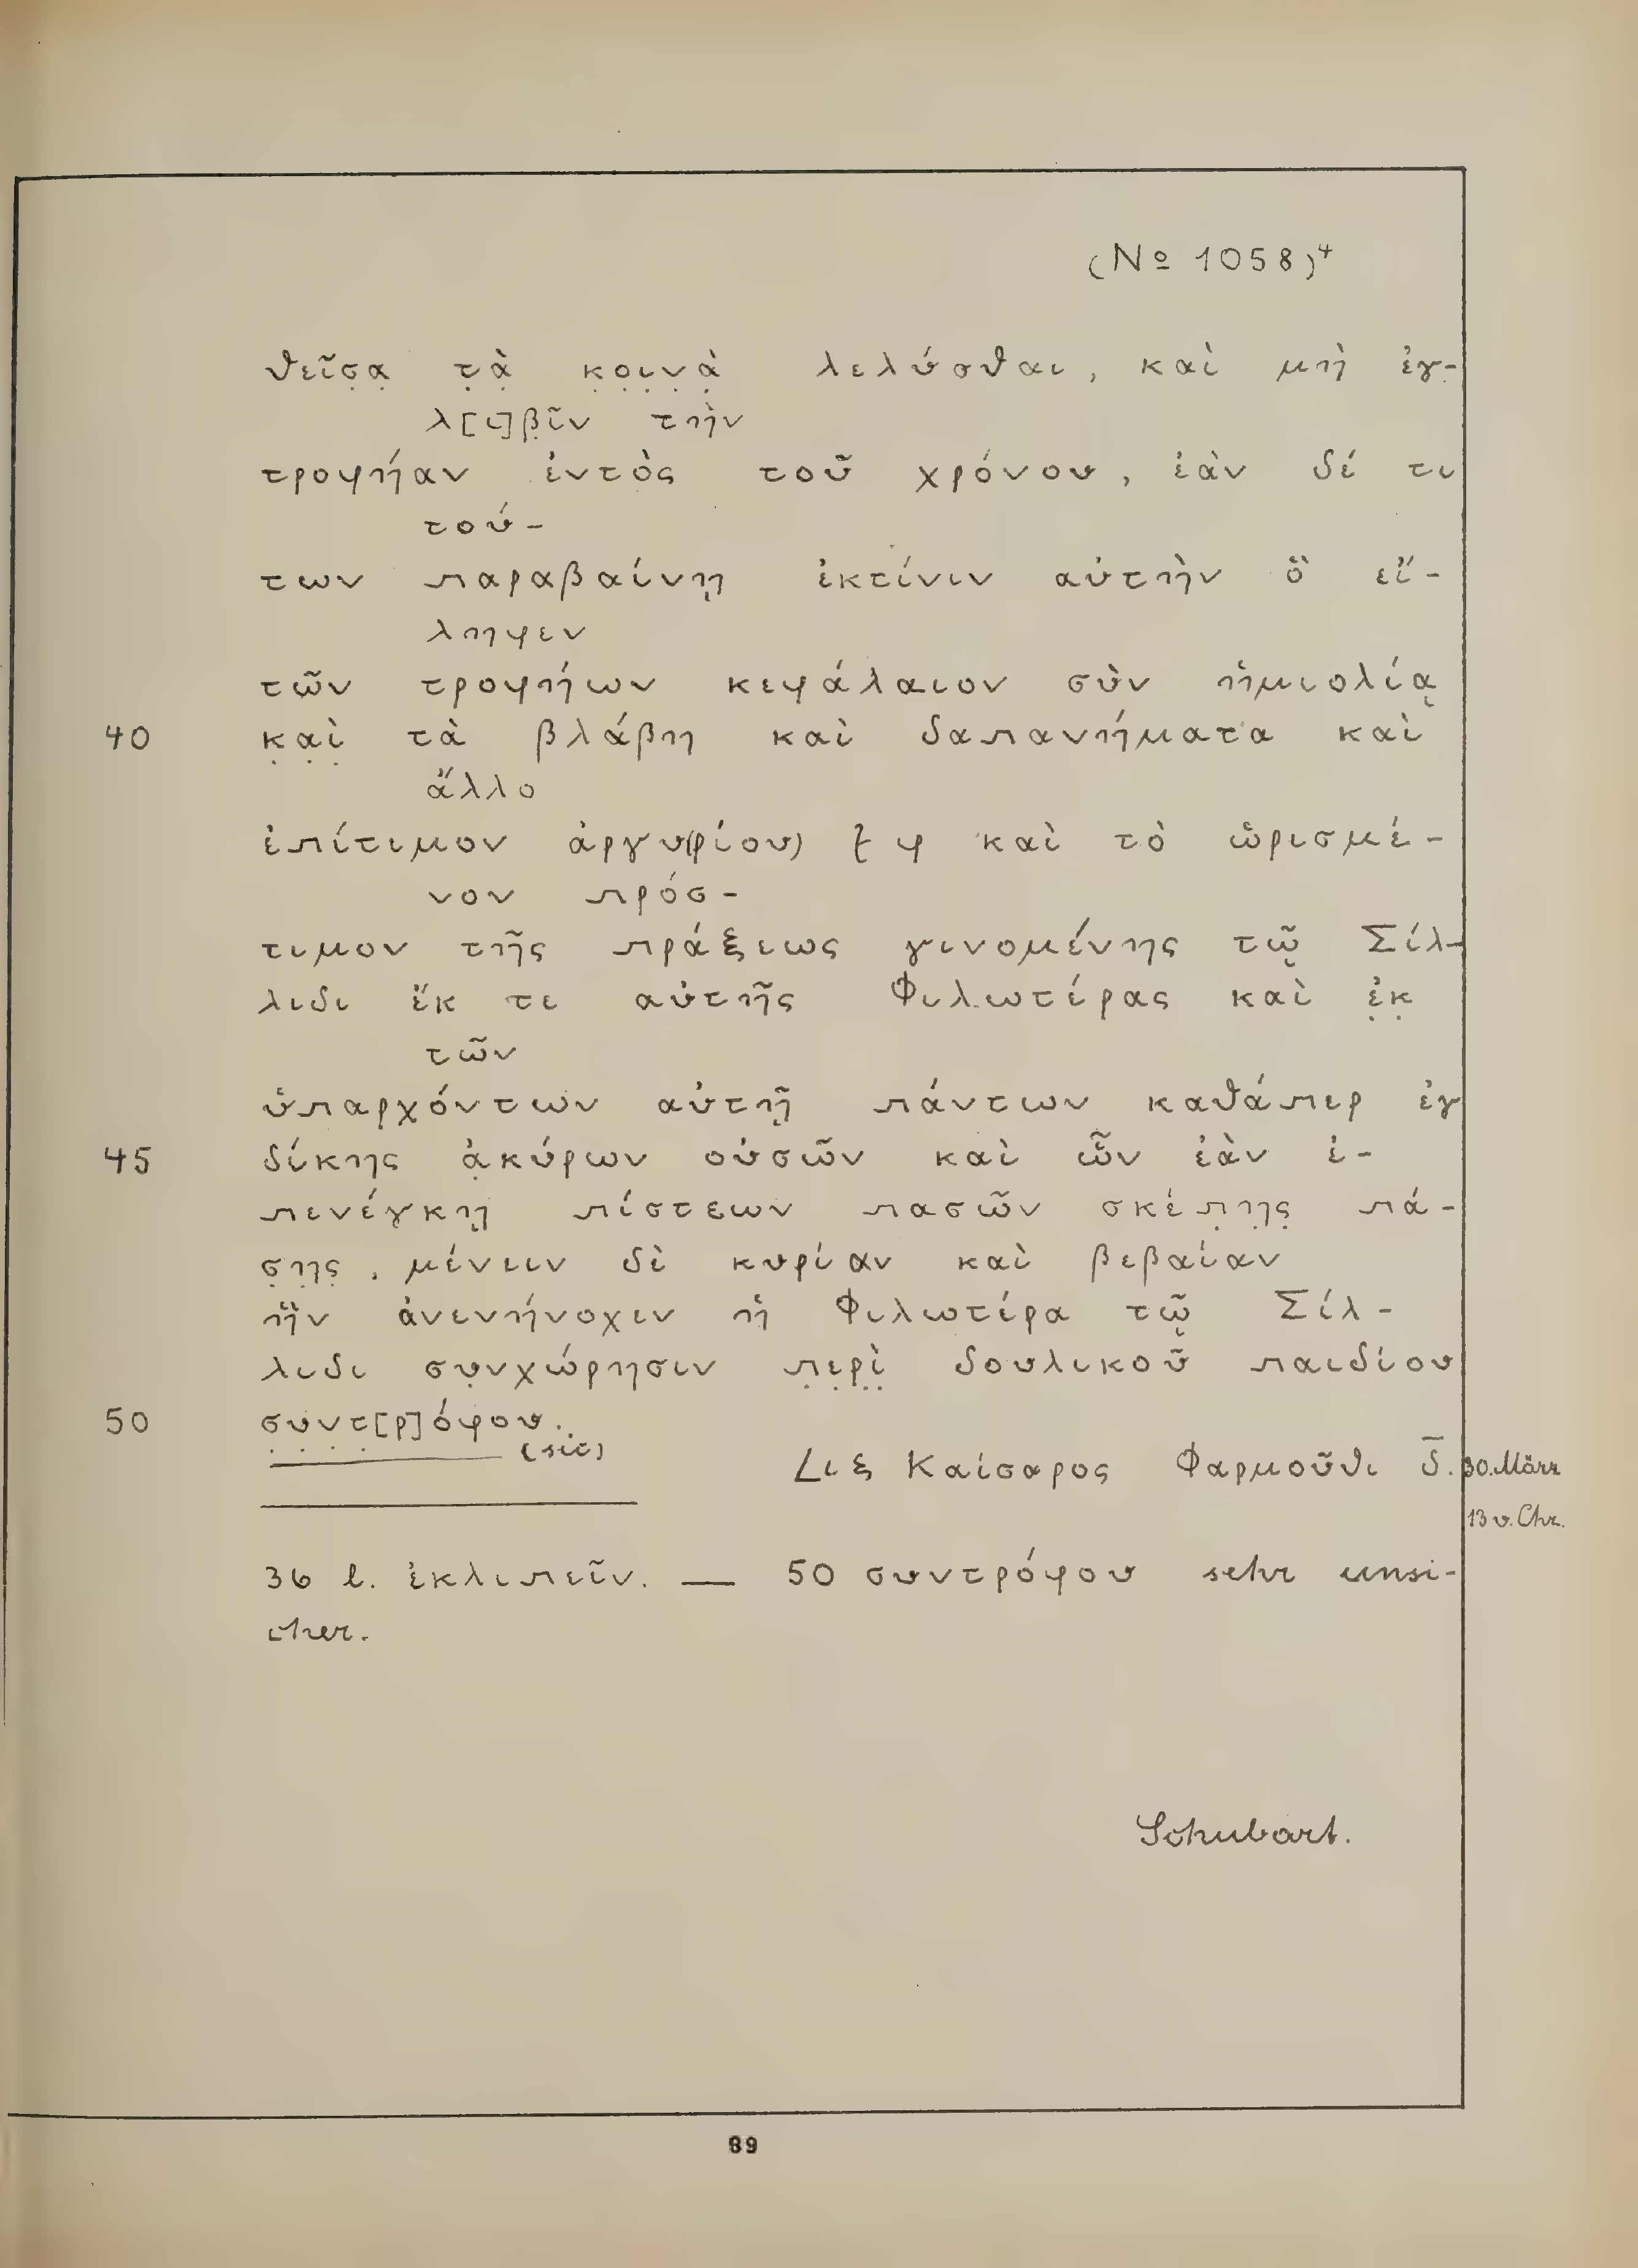 (Nº 1058)⁴
θεῖσ̣α̣ τ̣ὰ̣ κ̣ο̣ι̣ν̣ὰ̣ λελύσθαι, καὶ μὴ ἐγ-
λ[ι]β̣ῖν τὴν
τροφήαν ἐντὸς τοῦ χρόνου, ἐὰν δέ τι
τού-
των παραβαίνῃ ἐκτίνιν αὐτὴν ὃ εἴ-
ληφεν
τῶν τροφήων κεφάλαιον σὺν ἡμιολίᾳ
40 κ̣α̣ὶ̣ τὰ βλάβη καὶ δαπανήματα καὶ
ἄλλο
ἐπίτιμον ἀργυ(ρίου) ⟆ φ καὶ τὸ ὡρισμέ-
νον πρόσ-
τιμον τῆς πράξεως γινομένης τῷ Σίλ-
λιδι ἔκ τε αὐτῆς Φιλωτέρας καὶ ἐ̣κ̣
τῶν
ὑπαρχόντων αὐτῇ πάντων καθάπερ ἐγ
45 δίκης ἀ̣κύρων οὐσῶν καὶ ὧν ἐὰν ἐ-
πενέγκῃ πίστεων πασῶν σκέπ̣η̣ς̣ πά-
σ̣η̣ς̣, μένειν δὲ κυρίαν καὶ βεβαίαν
ἣν ἀνενήνοχεν ἡ Φιλωτέρα τῷ Σίλ-
λιδι συ̣νχώρησιν π̣ε̣ρ̣ὶ̣ δουλικοῦ παιδίου
50 σ̣υ̣ν̣τ̣[ρ]όφου.
(sic)
Lιξ Καίσαρος Φαρμοῦθι δ̅. 30. März
13 v. Chr.
36 l. ἐκλιπεῖν. — 50 συντρόφου sehr unsi-
cher.
Schubart.
89